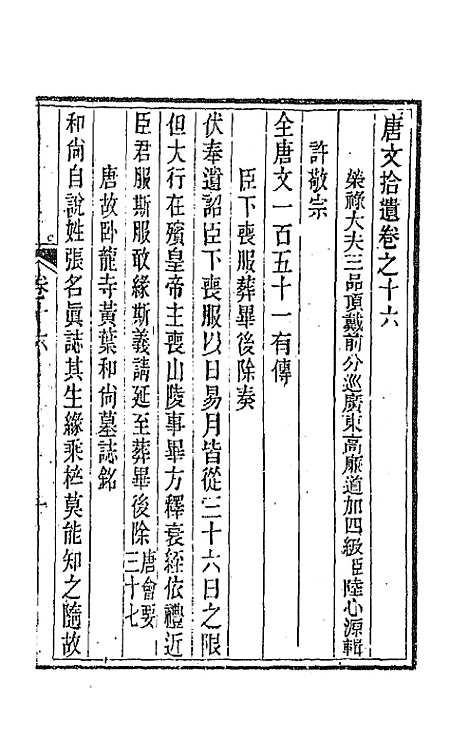 唐文拾遺卷之十六
榮祿大夫三品頂戴前分巡廣東高廉道加四級臣陸心源輯
許敬宗
全唐文一百五十一有傳
臣下喪服葬畢後除奏
伏奉遺詔臣下喪服以日易月皆從三十六日之限
但大行在殯皇帝主喪山陵事畢方釋衰絰依禮近
臣君服斯服敢緣斯義請延至葬畢後除唐會要三十七
唐故臥龍寺黃葉和尚墓誌銘
和尚自說姓張名眞誌其生緣乘桮莫能知之隨故
卷十六
一